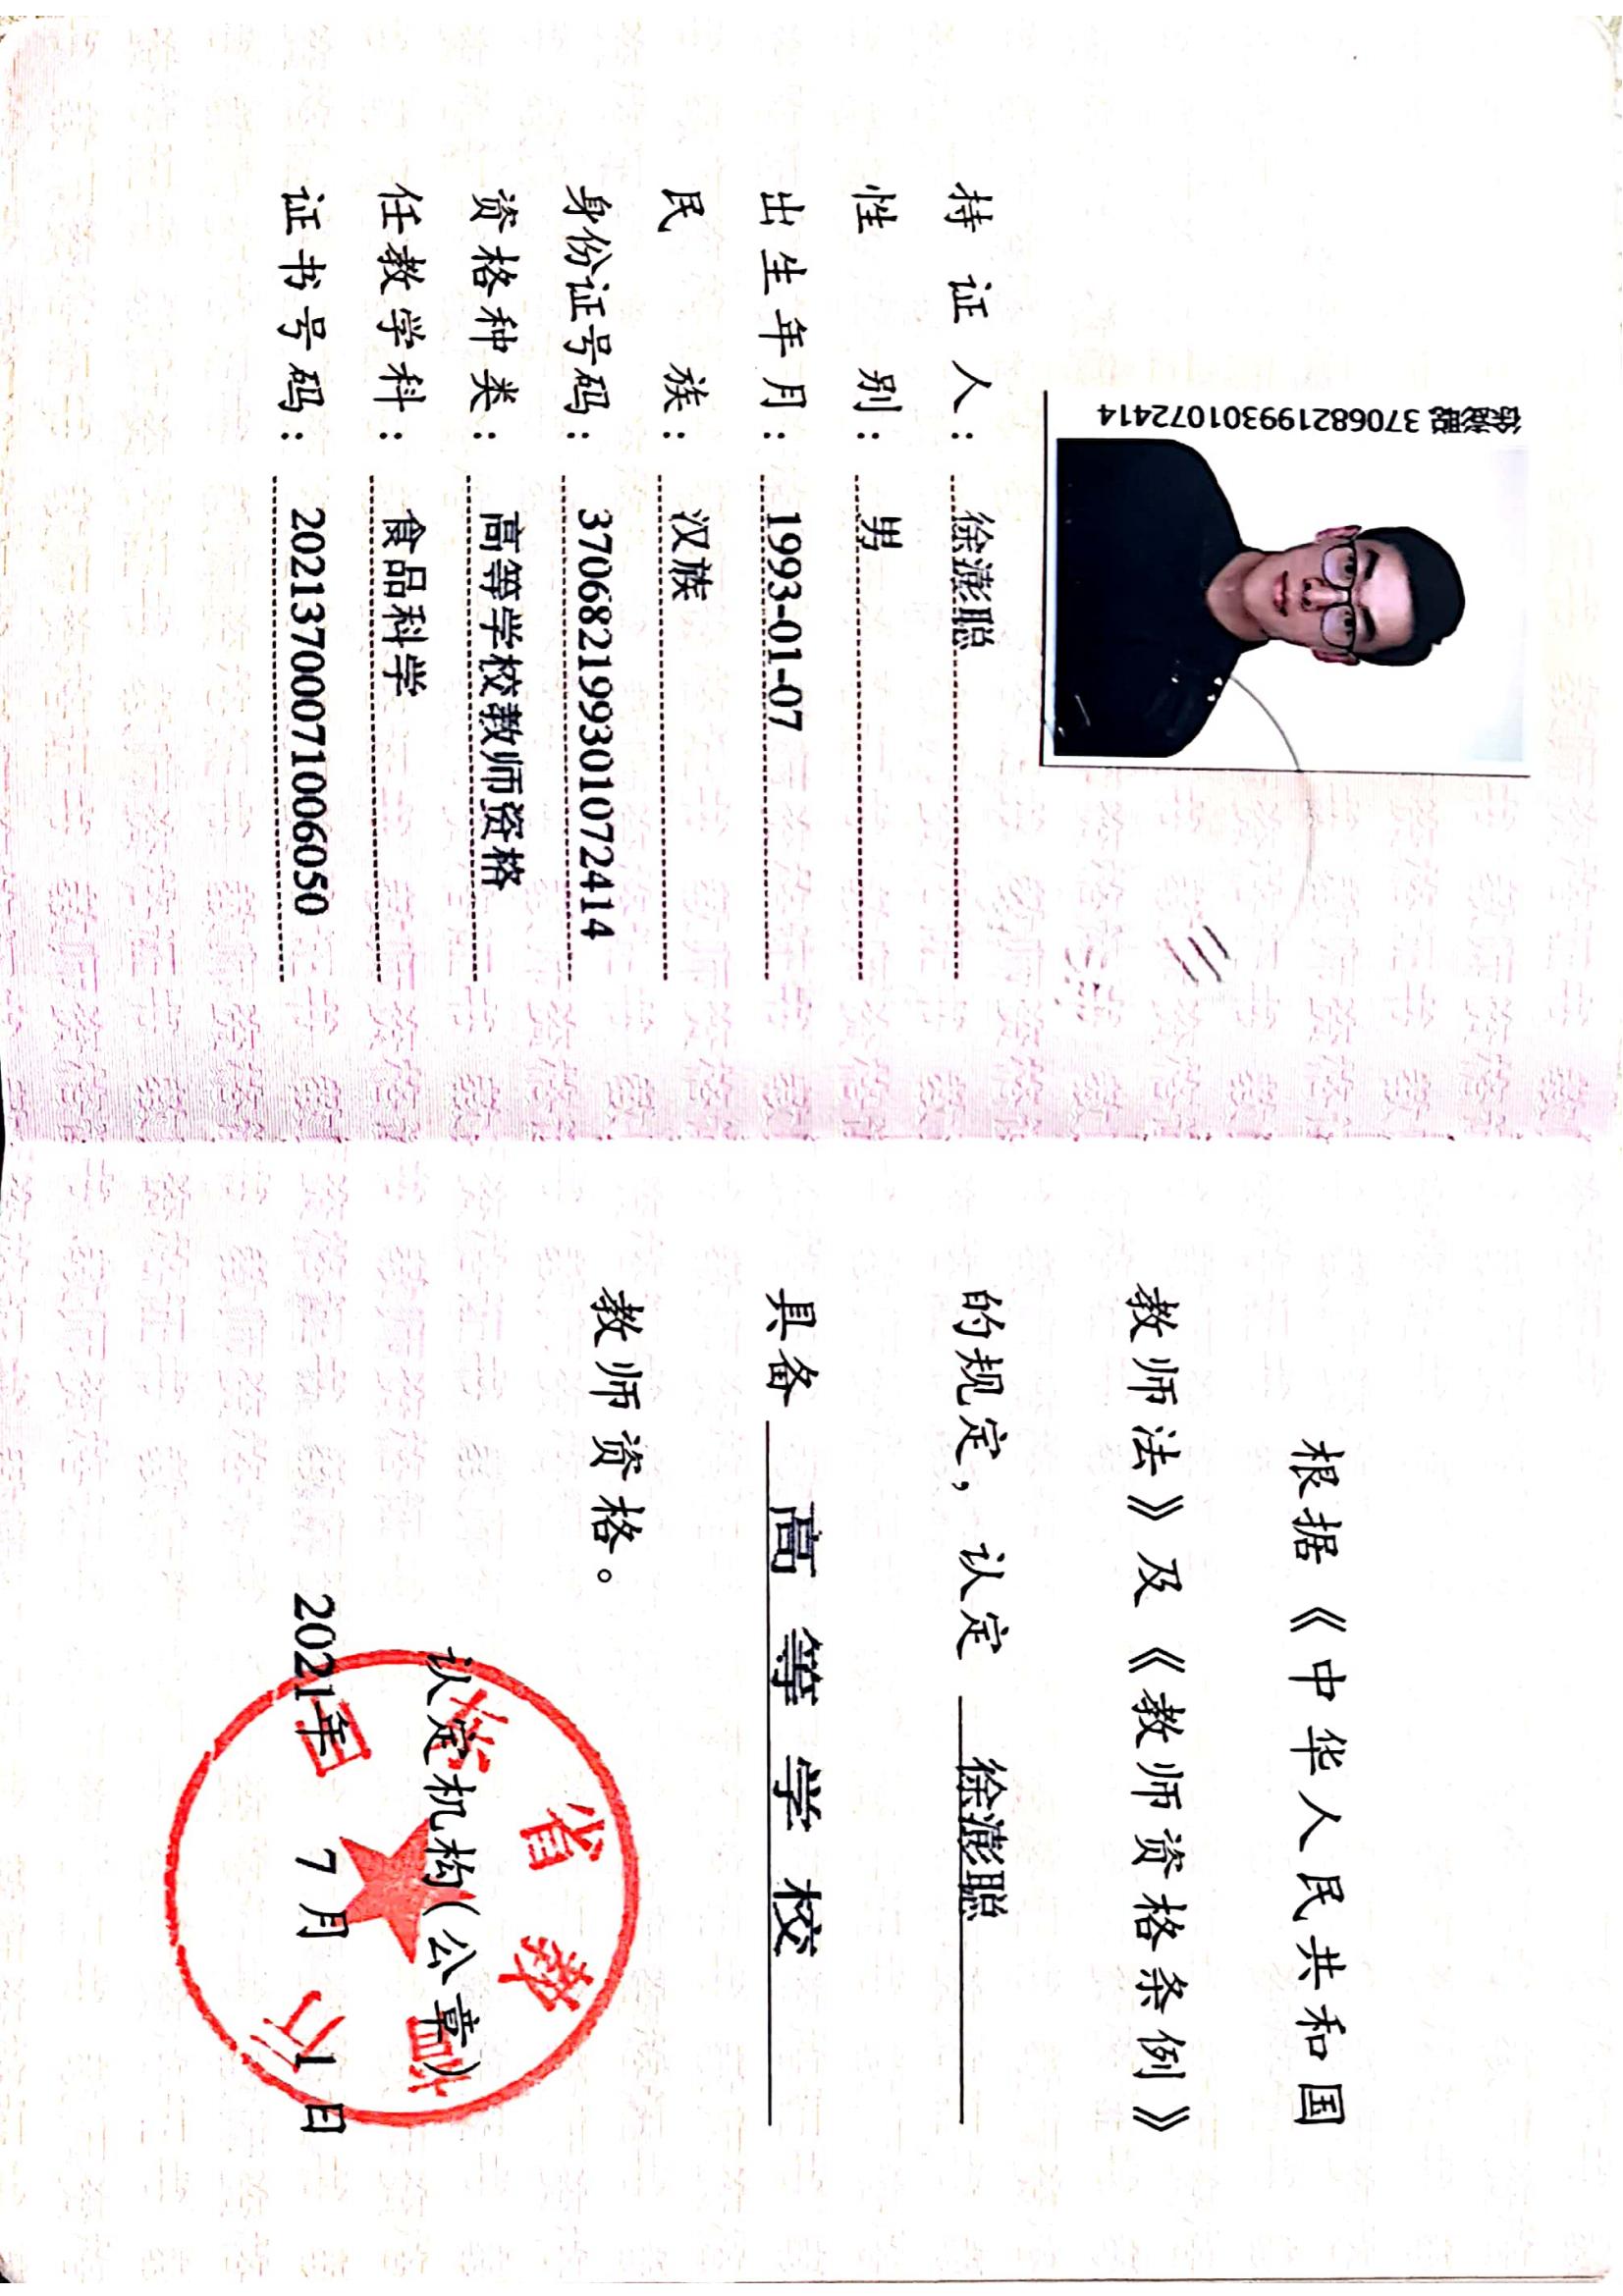 徐澎聪 370682199301072414
持证人：徐澎聪
性别：男
出生年月：1993-01-07
民族：汉族
身份证号码：370682199301072414
资格种类：高等学校教师资格
任教学科：食品科学
证书号码：20213700071006050
根据《中华人民共和国
教师法》及《教师资格条例》
的规定，认定 徐澎聪
具备 高等学校
教师资格。
认定机构(公章)
2021年 7月 1日
省教育厅